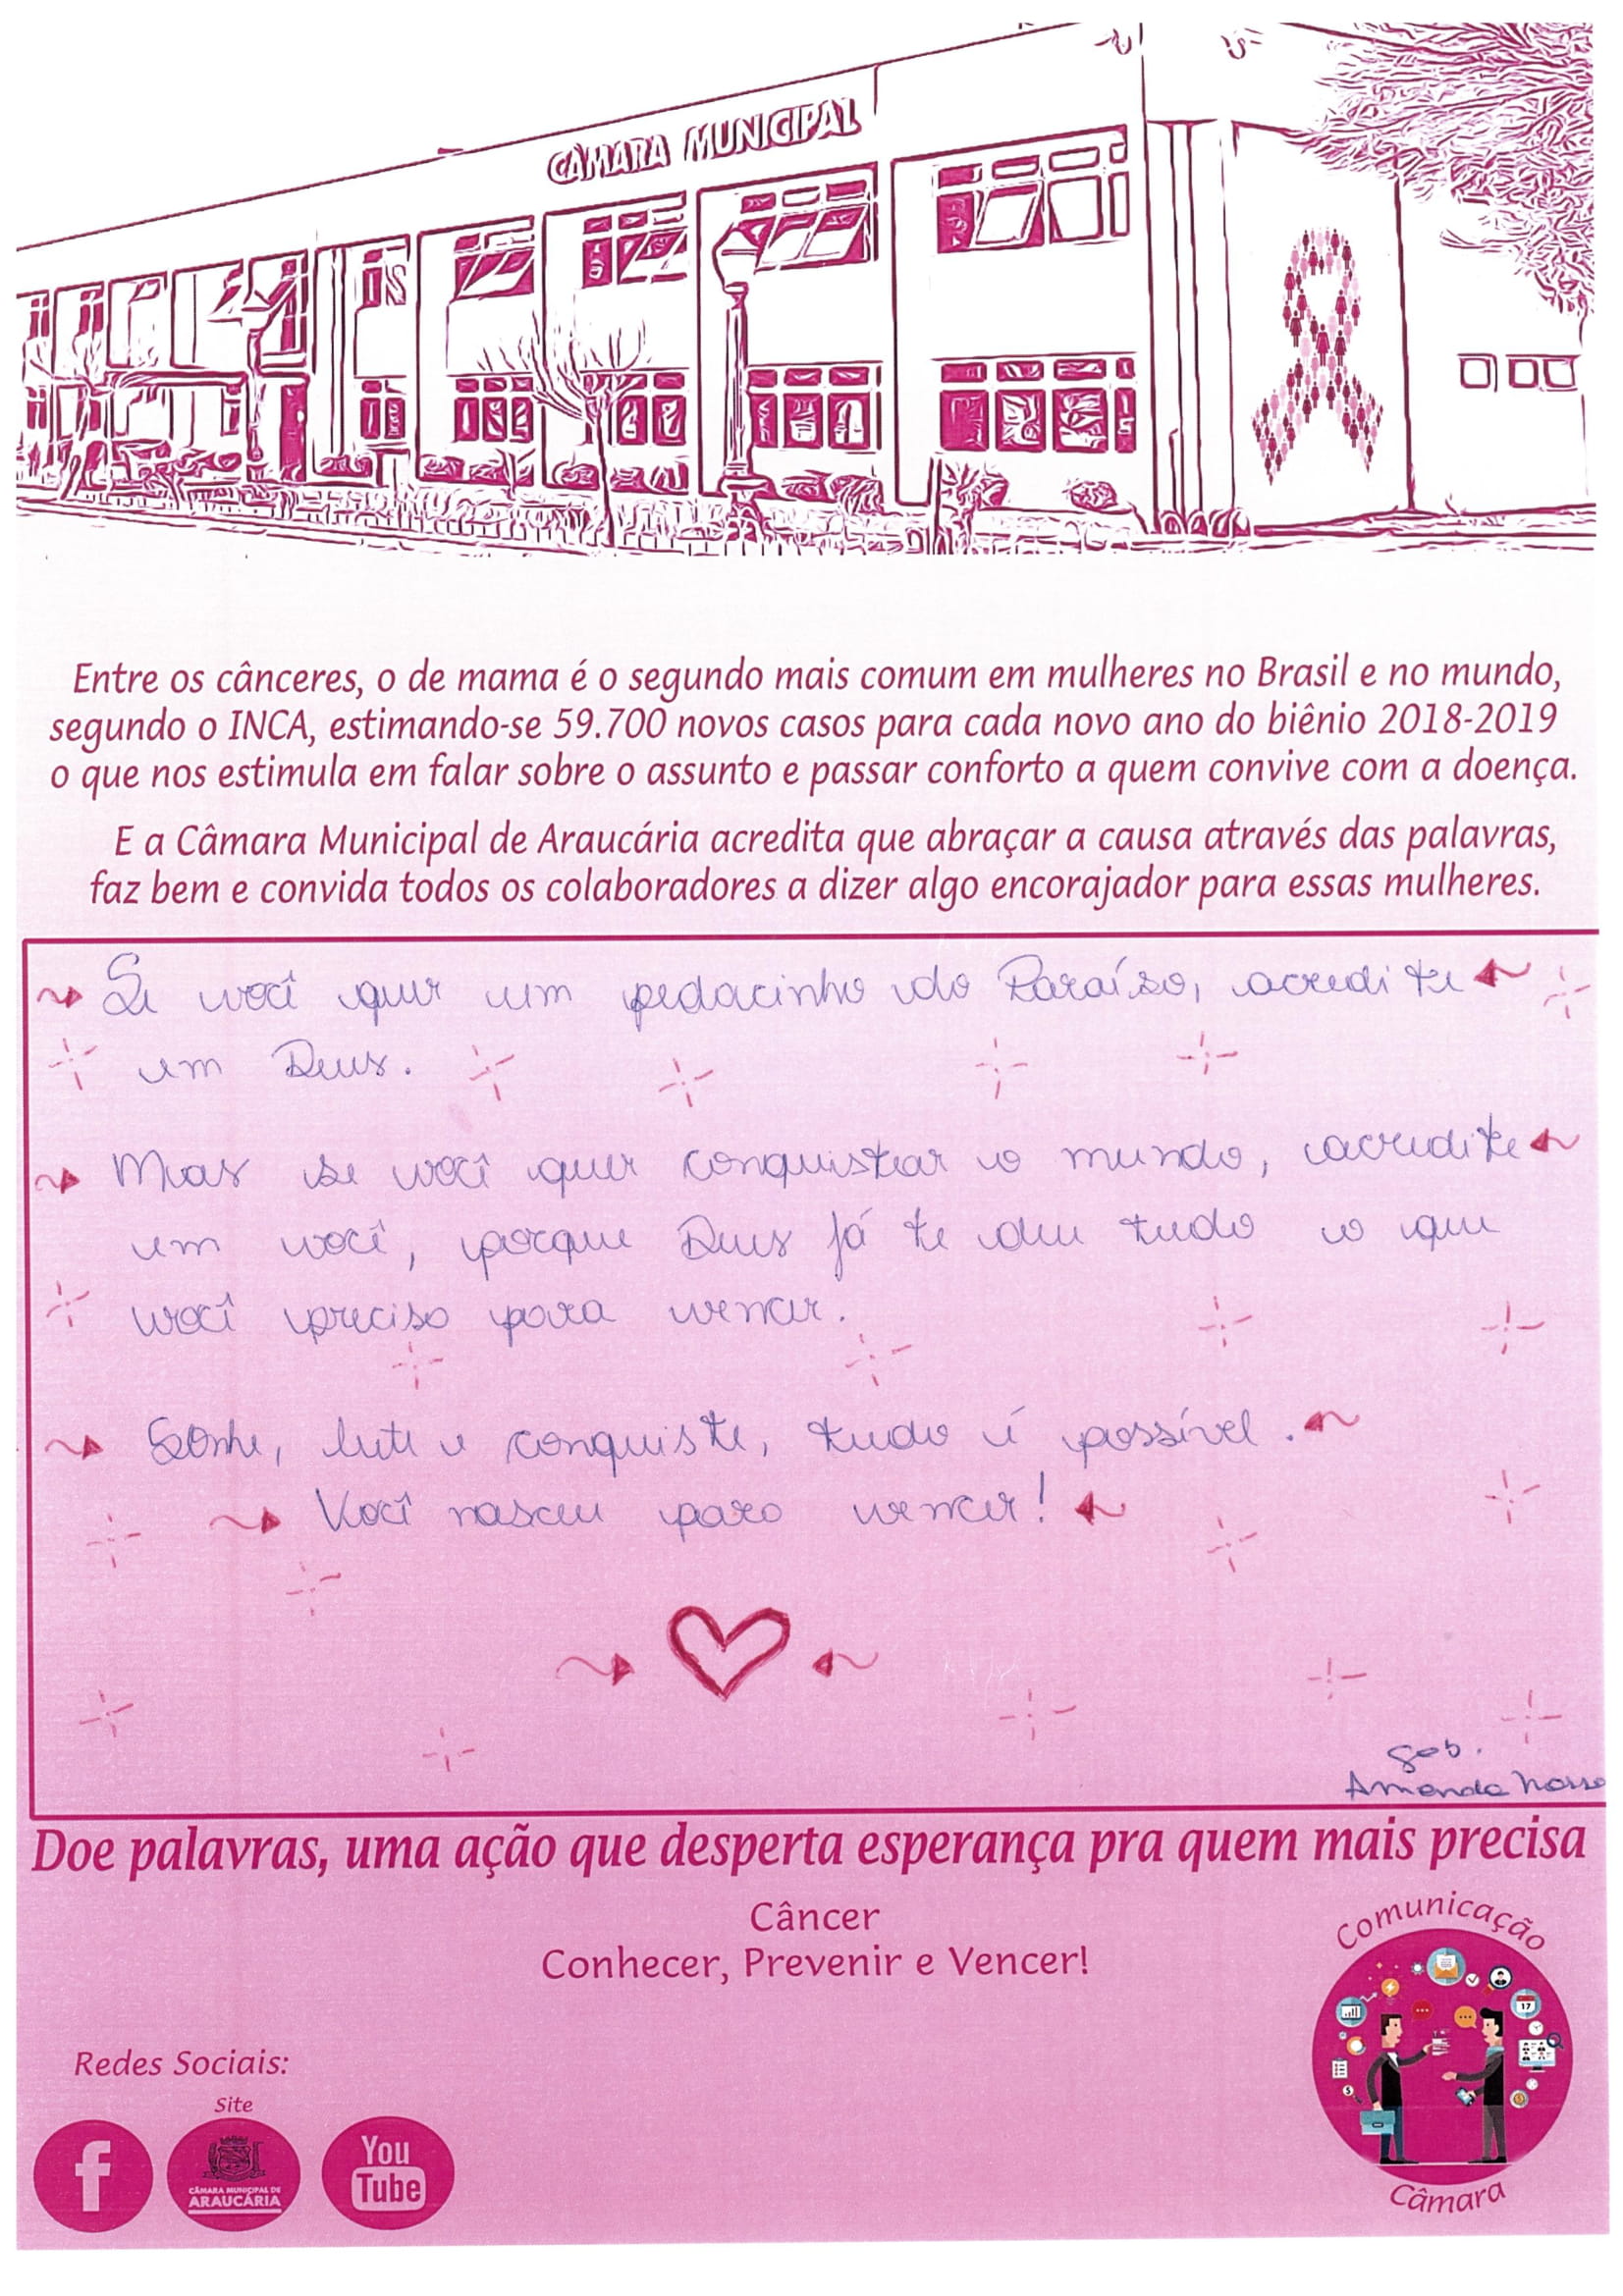 CÂMARA MUNICIPAL
Entre os cânceres, o de mama é o segundo mais comum em mulheres no Brasil e no mundo,
segundo o INCA, estimando-se 59.700 novos casos para cada novo ano do biênio 2018-2019
o que nos estimula em falar sobre o assunto e passar conforto a quem convive com a doença.
E a Câmara Municipal de Araucária acredita que abraçar a causa através das palavras,
faz bem e convida todos os colaboradores a dizer algo encorajador para essas mulheres.
Se você quer um pedacinho do Paraíso, acredite
em Deus.
Mas se você quer conquistar o mundo, acredite
em você, porque Deus já te deu tudo o que
você precisa para vencer.
Sonhe, lute e conquiste, tudo é possível.
Você nasceu para vencer!
Gab.
Amanda
Doe palavras, uma ação que desperta esperança pra quem mais precisa
Câncer
Conhecer, Prevenir e Vencer!
Comunicação
17
Câmara
Redes Sociais:
Site
f
CÂMARA MUNICIPAL DE
ARAUCÁRIA
You
Tube